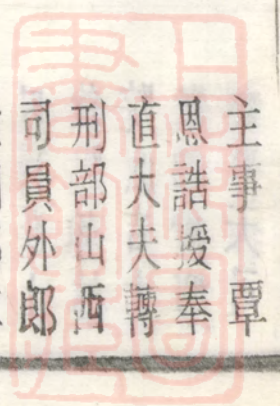 主事覃
恩誥授奉
直大夫轉
刑部山西
司員外郎